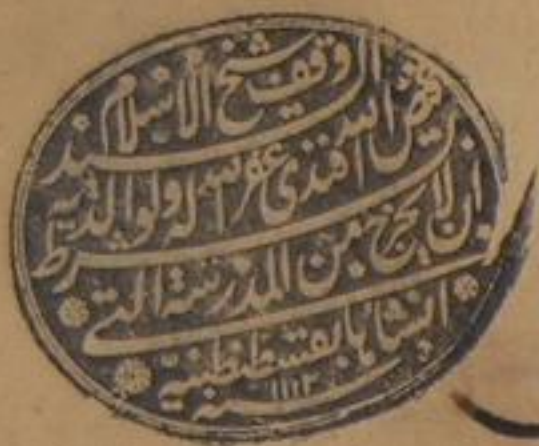 وقف شيخ الاسلام
السيد فيض الله
افندى غفر الله له ولوالديه
بشرط ان لا يخرج من المدرسة التى
انشاها بقسطنطينية
سنه ١١١٣